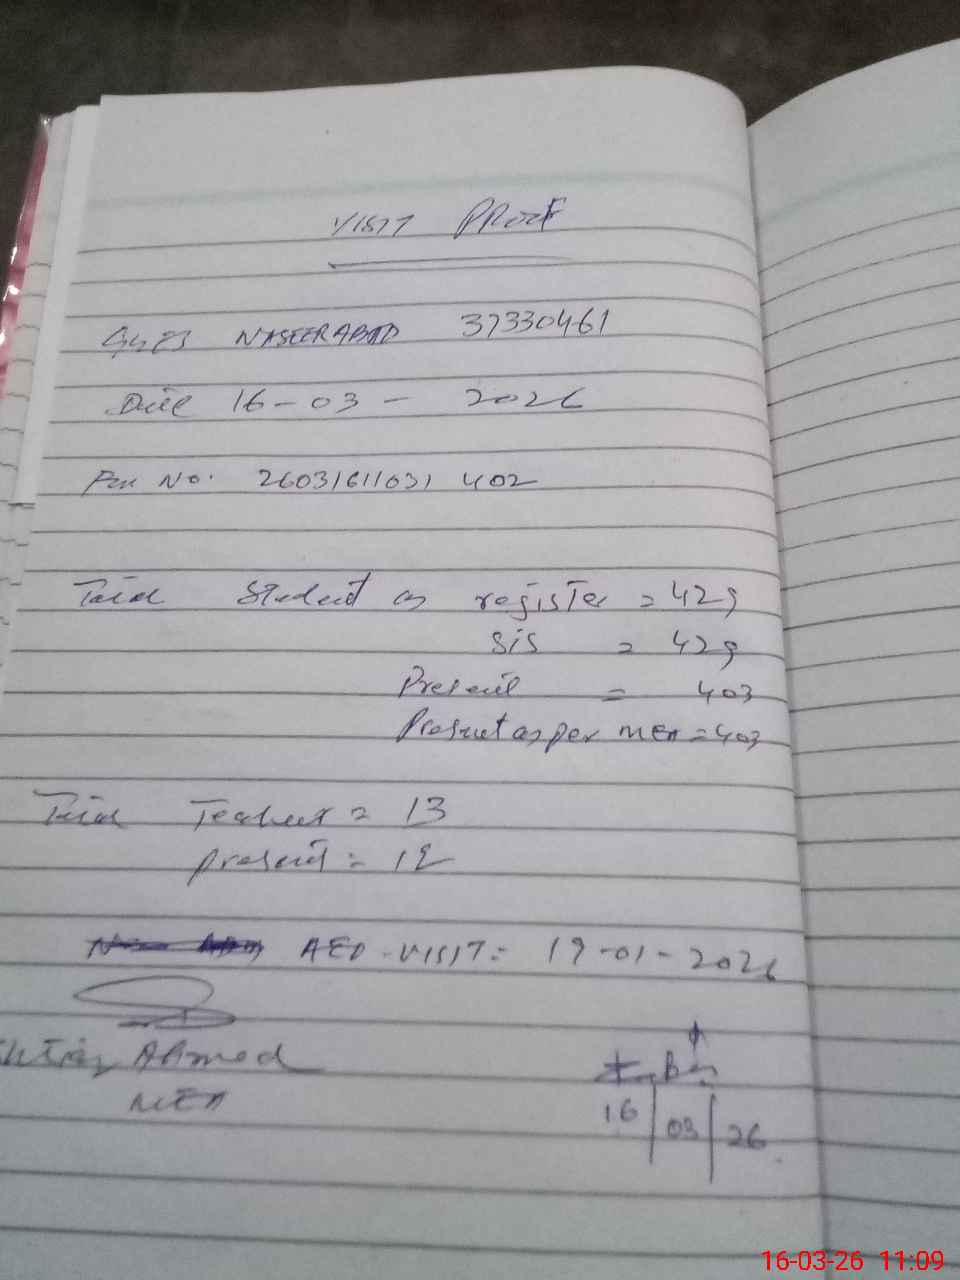 VISIT PROOF
GGES NASEERABAD 37330461
Date 16-03-2026
Pin No. 26031611031402
Total Student as register = 429
SIS = 429
Present = 403
Present as per MEA = 403
Total Teachers = 13
present = 12
AEO-VISIT = 19-01-2026
Ahmed
MEA
16 | 03 | 26
16-03-26 11:09